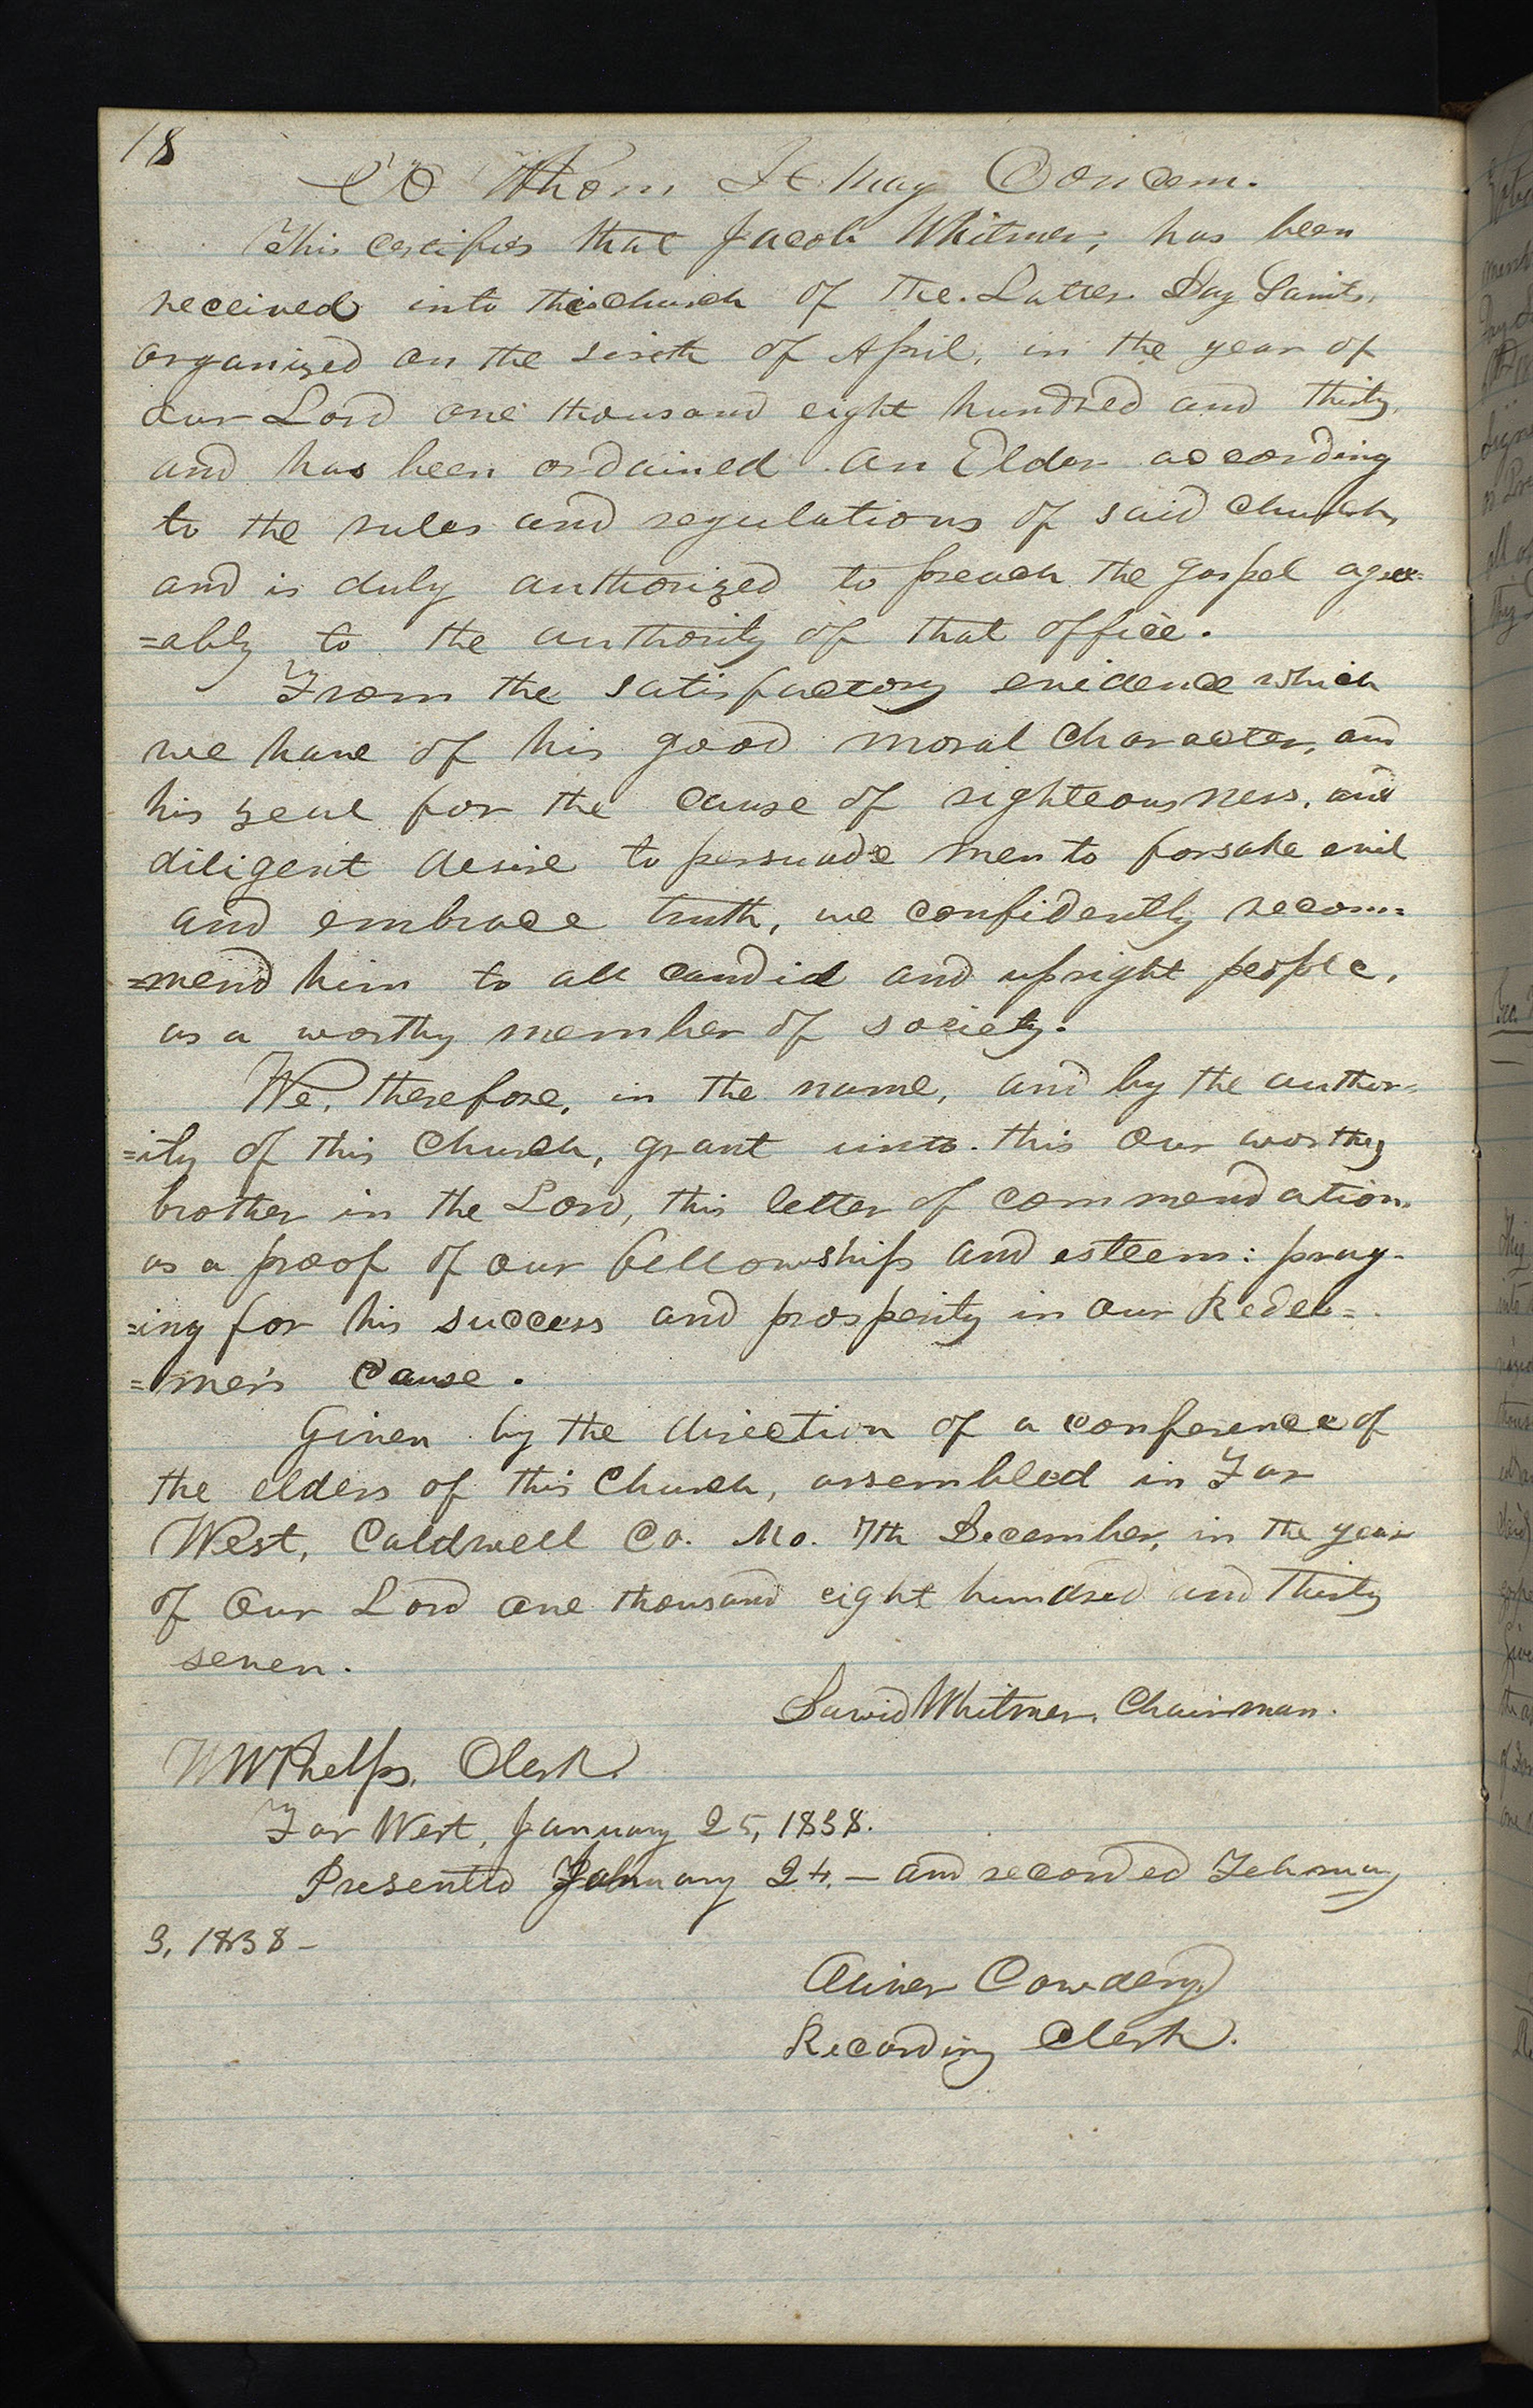 18
To Whom It May Concern.
This certifies that Jacob Whitmer, has been
received into this church of the Latter Day Saints,
organized on the sixth of April, in the year of
our Lord one thousand eight hundred and thirty,
and has been ordained an Elder according
to the rules and regulations of said church,
and is duly authorized to preach the gospel agree=
=ably to the authority of that office.
From the satisfactory evidence which
we have of his good moral character, and
his zeal for the cause of righteousness, and
diligent desire to persuade men to forsake evil
and embrace truth, we confidently recom=
=mend him to all candid and upright people,
as a worthy member of society.
We, therefore, in the name, and by the author-
=ity of this Church, grant unto this our worthy
brother in the Lord, this letter of commendation,
as a proof of our fellowship and esteem: pray-
=ing for his success and prosperity in our Redee=
=mer's cause.
Given by the direction of a conference of
the elders of this Church, assembled in Far
West, Caldwell Co. Mo. 7th December, in the year
of our Lord one thousand eight hundred and thirty
seven.
David Whitmer, Chairman.
W W Phelps, Clerk.
Far West, January 25, 1838.
Presented January 24,— and recorded February
3, 1838—
Oliver Cowdery,
Recording Clerk.